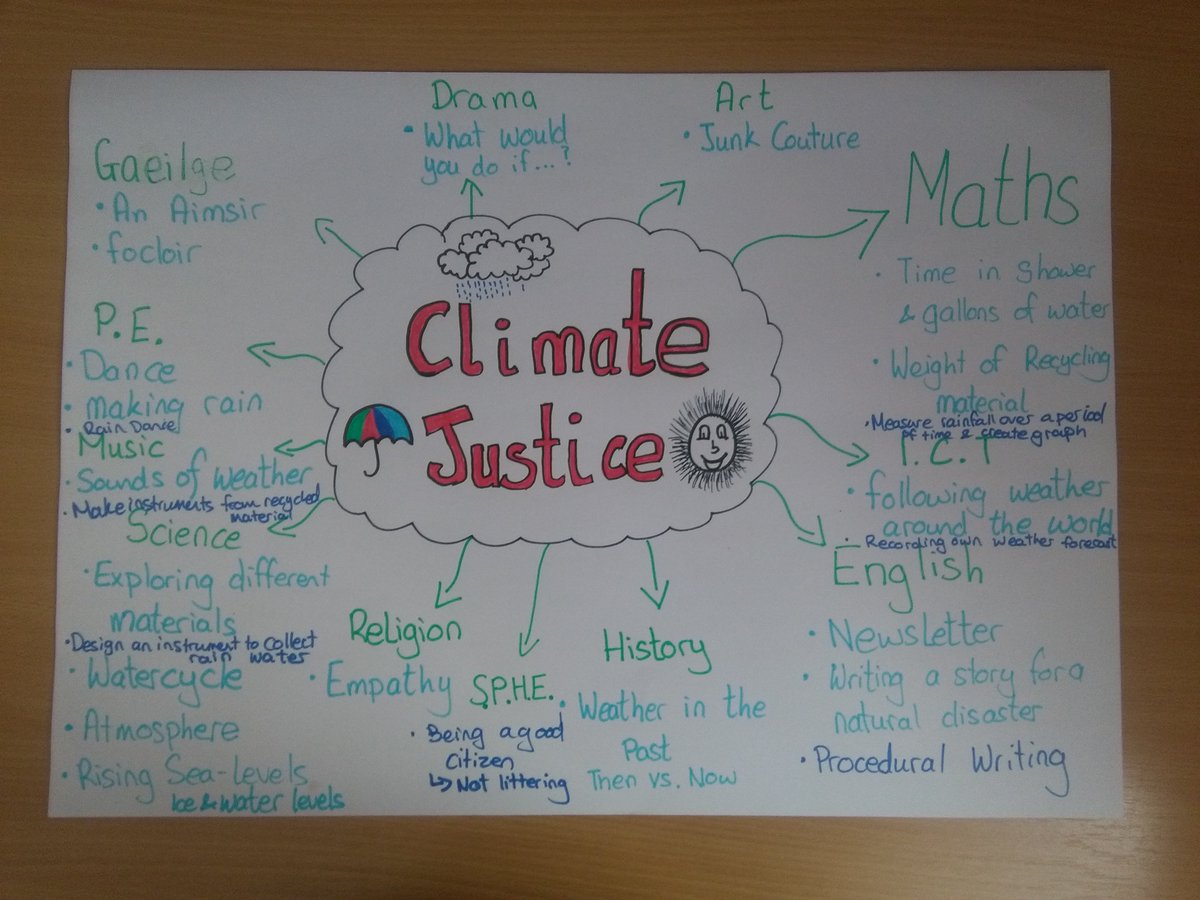 Climate
Justice
Drama
• What would
you do if...?
Art
• Junk Couture
Maths
• Time in shower
& gallons of water
• Weight of Recycling
material
• Measure rainfall over a period
of time & create graph
I.C.T
• following weather
around the world
• Recording own weather forecast
English
• Newsletter
• Writing a story for a
natural disaster
• Procedural Writing
History
• Weather in the
Past
Then vs. Now
S.P.H.E.
• Being a good
Citizen
↳ Not littering
Religion
• Empathy
Science
• Exploring different
materials
• Design an instrument to collect
rain water
• Watercycle
• Atmosphere
• Rising Sea-levels
Ice & water levels
Music
• Sounds of weather
• Make instruments from recycled
material
P.E.
• Dance
• making rain
• Rain Dance
Gaeilge
• An Aimsir
• focloir